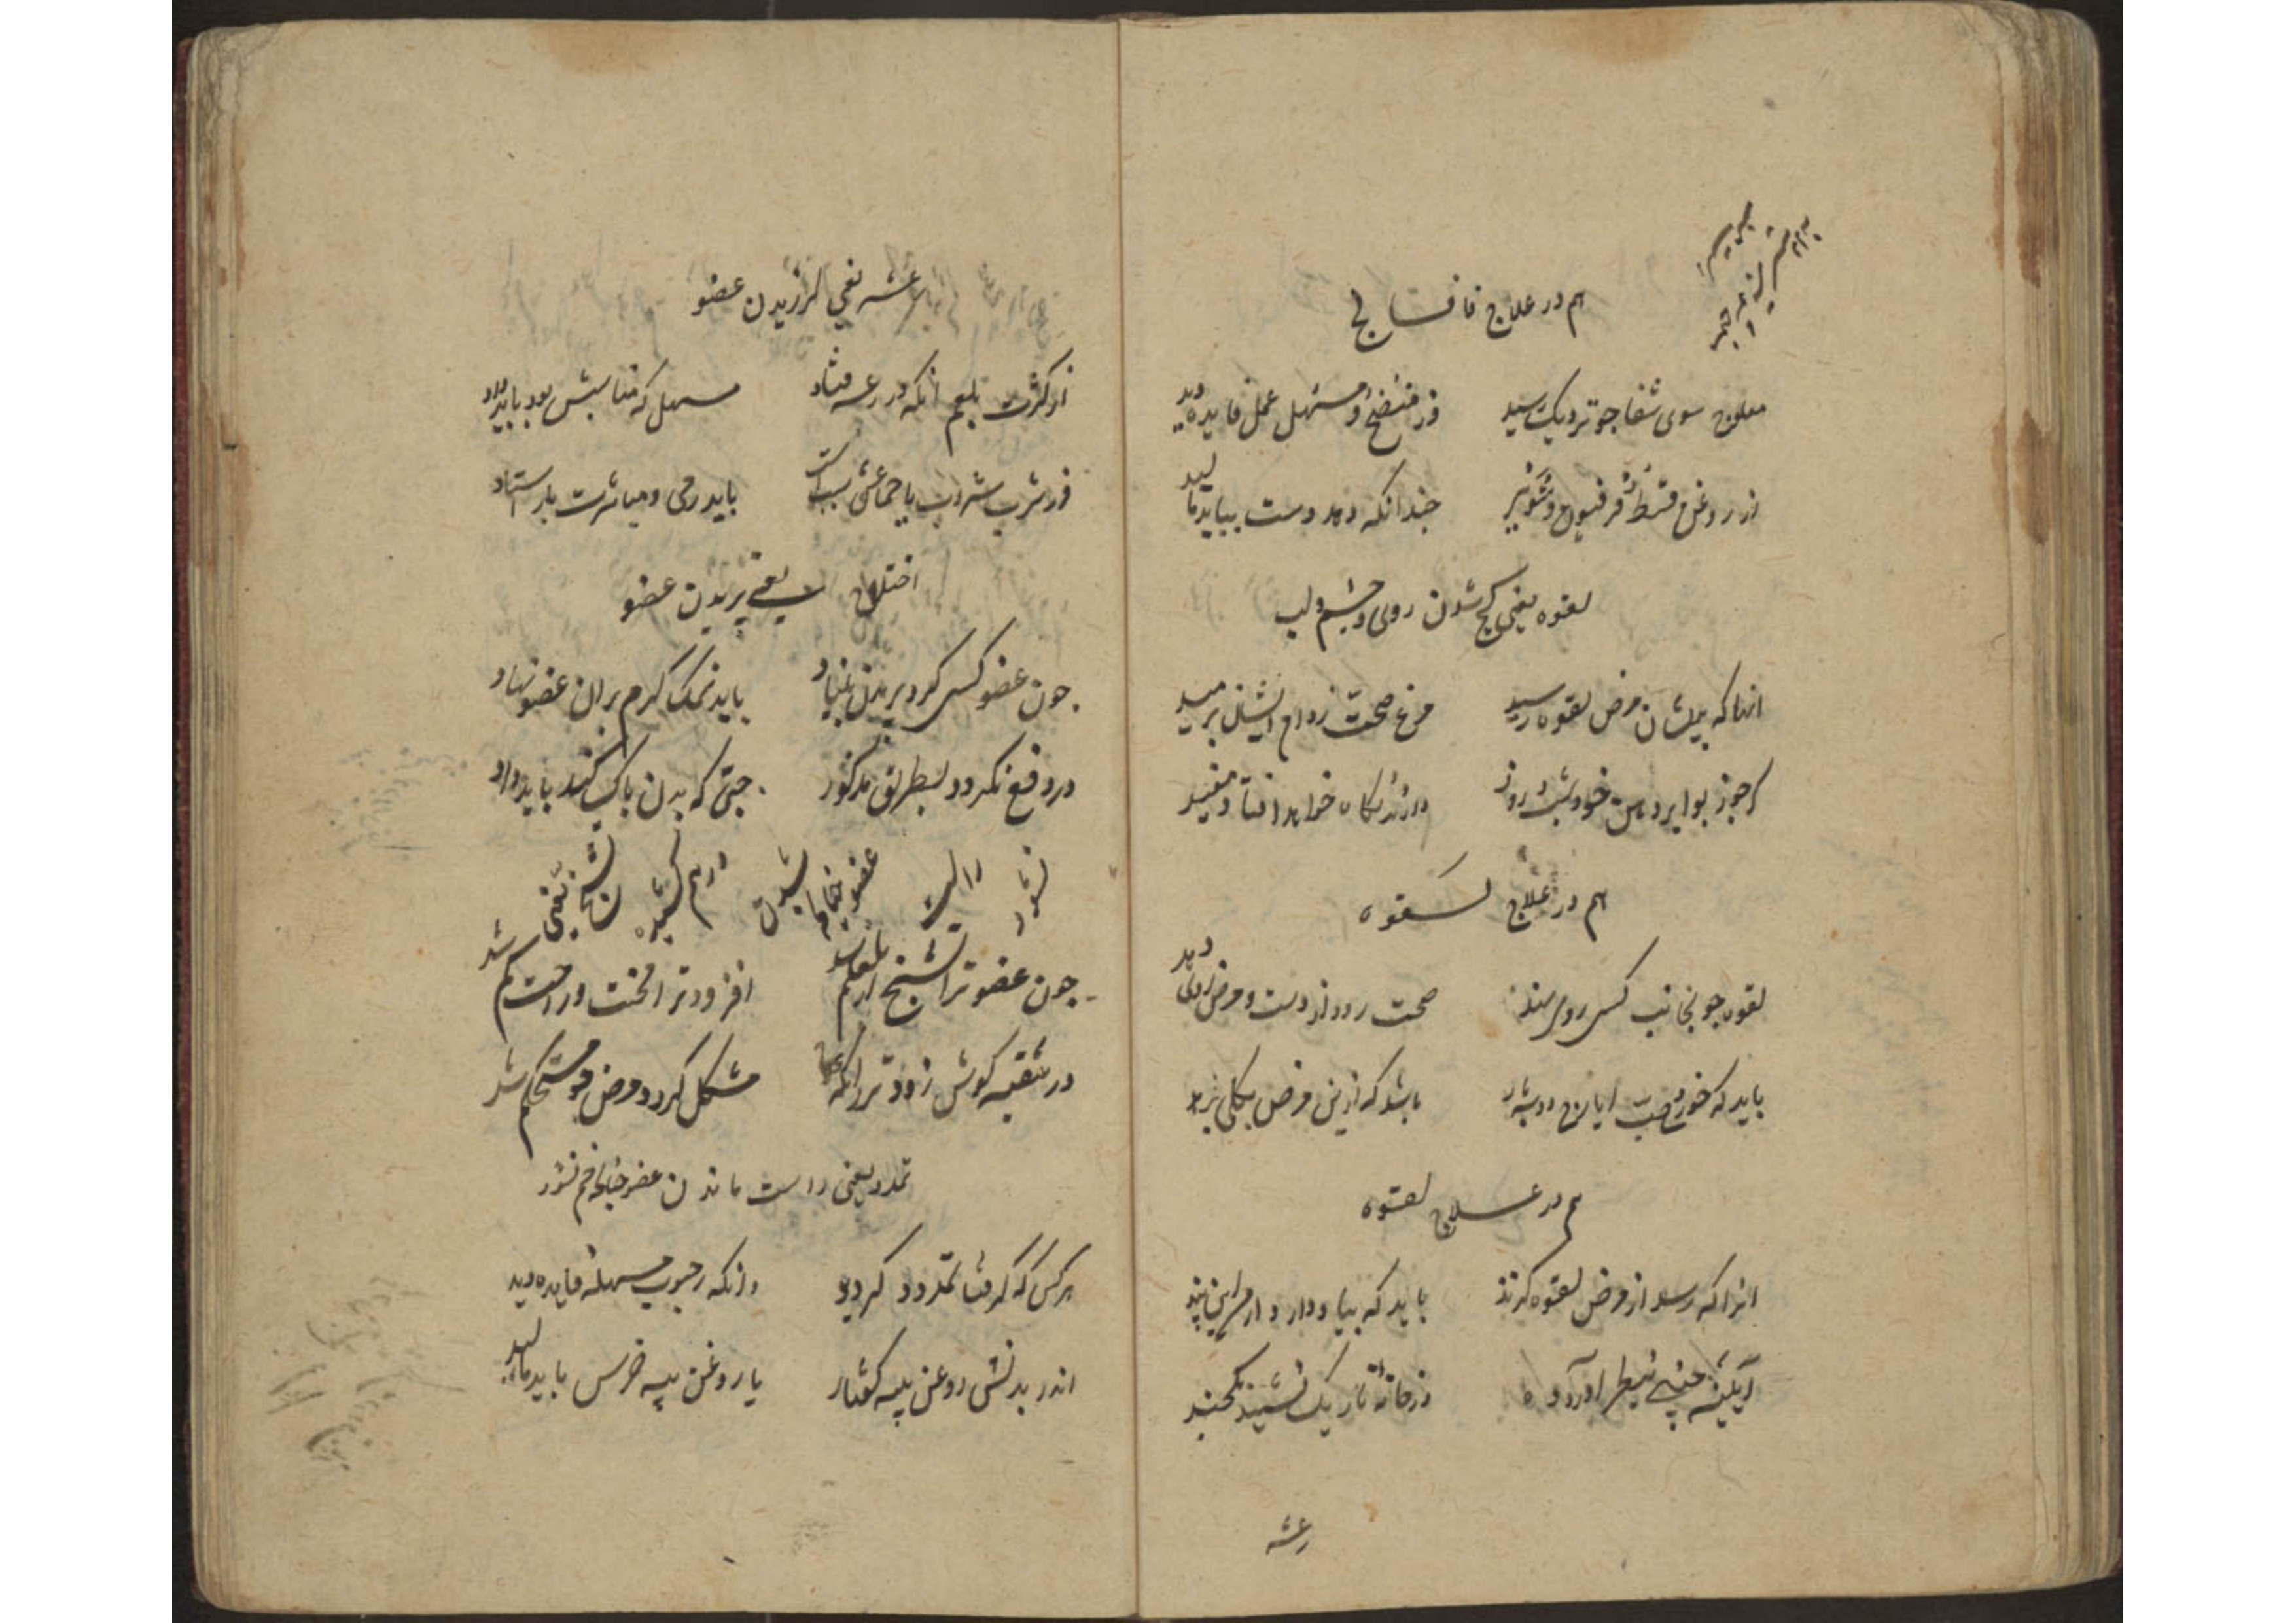 هم در علاج فالج
مفلوج سوی شفا چو نزدیک رسید
وز منضج و مسهل عمل فایده دید
از روغن قسط و فرفیون و شونیز
چندانکه دهد دست بباید مالید
لقوه یعنی کج شدن روی و چشم و لب
انها که بدیشان مرض لقوه رسید
مرغ صحت ز دام ایشان برمید
کر جوز بوا بردهن خود شب و روز
دارند نکاه خواهد افتاد مفید
هم در علاج لقوه
لقوه چو بجانب کسی روی نهد
صحت رود از دست و مرض روی دهد
باید که خورد حب ایارج دو سه بار
باشد که ازین مرض بکلی برهد
هم در علاج لقوه
انرا که رسد از مرض لقوه کزند
باید که بیاد دارد از من این پند
آیینه چینی بنظر آورده
در خانه تاریک نشیند یکچند
رعشه
رعشه یعنی لرزیدن عضو
از کثرت بلغم انکه در رعشه فتاد
مسهل که مناسبش بود باید داد
ور شرب شراب یا جماعش سبب است
باید ز می و مباشرت باز استاد
اختلاج یعنی پریدن عضو
چون عضو کسی کرد پریدن بنیاد
باید نمک کرم بران عضو نهاد
ور دفع نکردد بطریق مذکور
حبی که بدن پاک کند باید داد
تشنج یعنی درهم کشیده شدن عضو چنانچه راست نشود
چون عضو ترا تشنج از بلغم شد
افزود ترا محنت و راحت کم شد
در تنقیه کوش زودتر زانکه علاج
مشکل کردد مرض چو مستحکم شد
تمدد یعنی راست ماندن عضو چنانچه خم نشود
هر کس که کرفتار تمدد کردید
وانکه ز حبوب مسهله فایده دید
اندر بدنش روغن پیه کفتار
یا روغن پیه خرس باید مالید